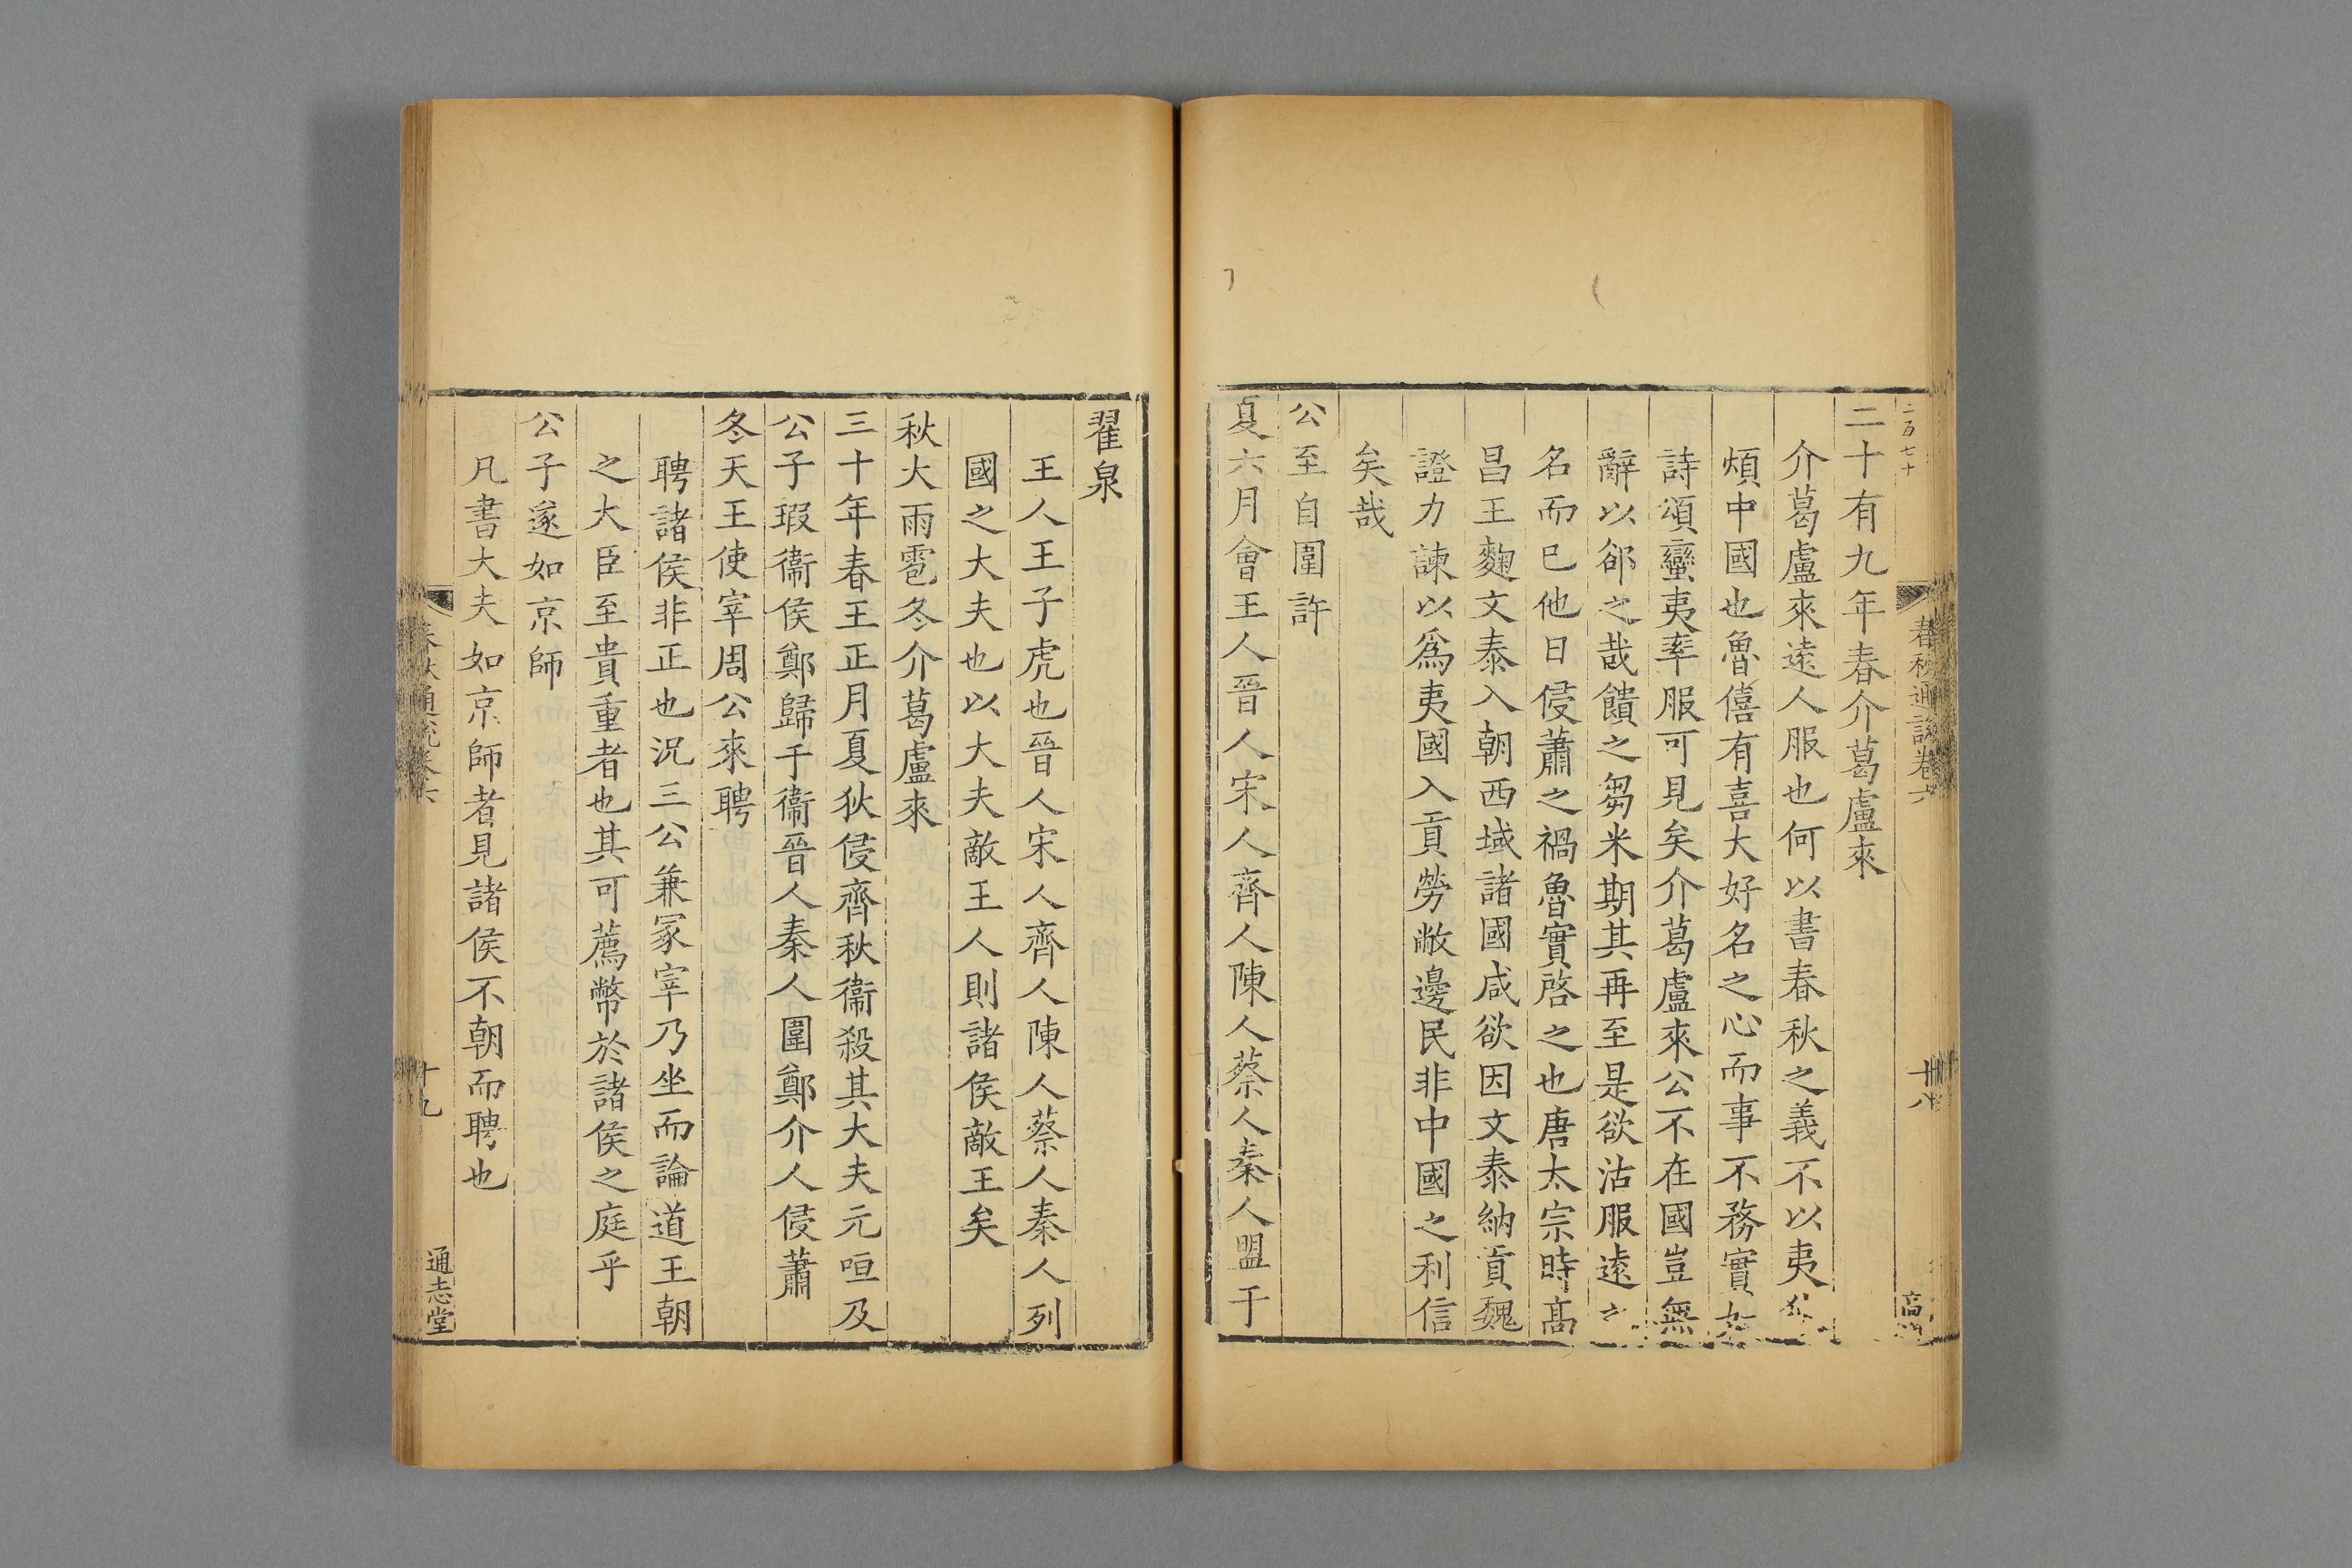 二百七十
春秋通說卷六
十八
二十有九年春介葛盧來
介葛盧來遠人服也何以書春秋之義不以夷
煩中國也魯僖有喜大好名之心而事不務實如
詩頌蠻夷率服可見矣介葛盧來公不在國豈無
辭以郤之哉饋之芻米期其再至是欲沽服遠之
名而已他日侵蕭之禍魯實啓之也唐太宗時髙
昌王麴文泰入朝西域諸國咸欲因文泰納貢魏
證力諫以爲夷國入貢勞敝邊民非中國之利信
矣哉
公至自圍許
夏六月會王人晉人宋人齊人陳人蔡人秦人盟于
翟泉
王人王子虎也晉人宋人齊人陳人蔡人秦人列
國之大夫也以大夫敵王人則諸侯敵王矣
秋大雨雹冬介葛盧來
三十年春王正月夏狄侵齊秋衞殺其大夫元咺及
公子瑕衞侯鄭歸于衞晉人秦人圍鄭介人侵蕭
冬天王使宰周公來聘
聘諸侯非正也況三公兼冢宰乃坐而論道王朝
之大臣至貴重者也其可薦幣於諸侯之庭乎
公子遂如京師
凡書大夫如京師者見諸侯不朝而聘也
春秋通說卷六
十九
通志堂